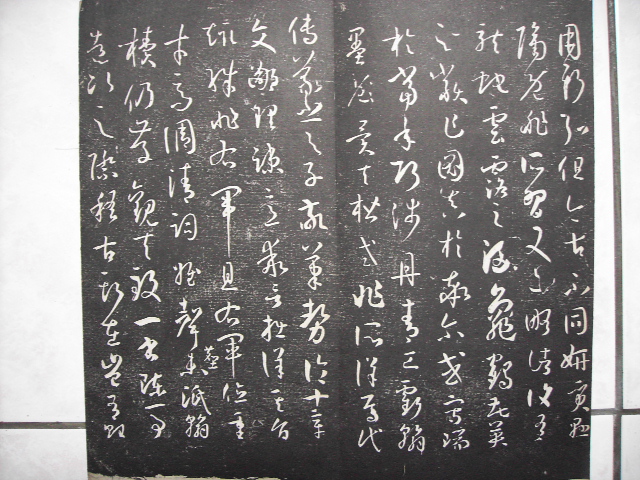 用斯弘但今古不同妍質懸
隔既非所習又亦略諸復有
龍蛇雲露之流龜鶴花英
之類乍圖真於率爾或寫瑞
於當年巧涉丹青工虧翰
墨異夫楷式非所詳焉代
傳羲之與子敬筆勢論十章
文鄙理疎意乖言拙詳其旨
趣殊非右軍且右軍位重
才高調清詞雅聲塵未泯翰
牘仍存觀夫致一書陳一事
造次之際稽古斯在豈有貽